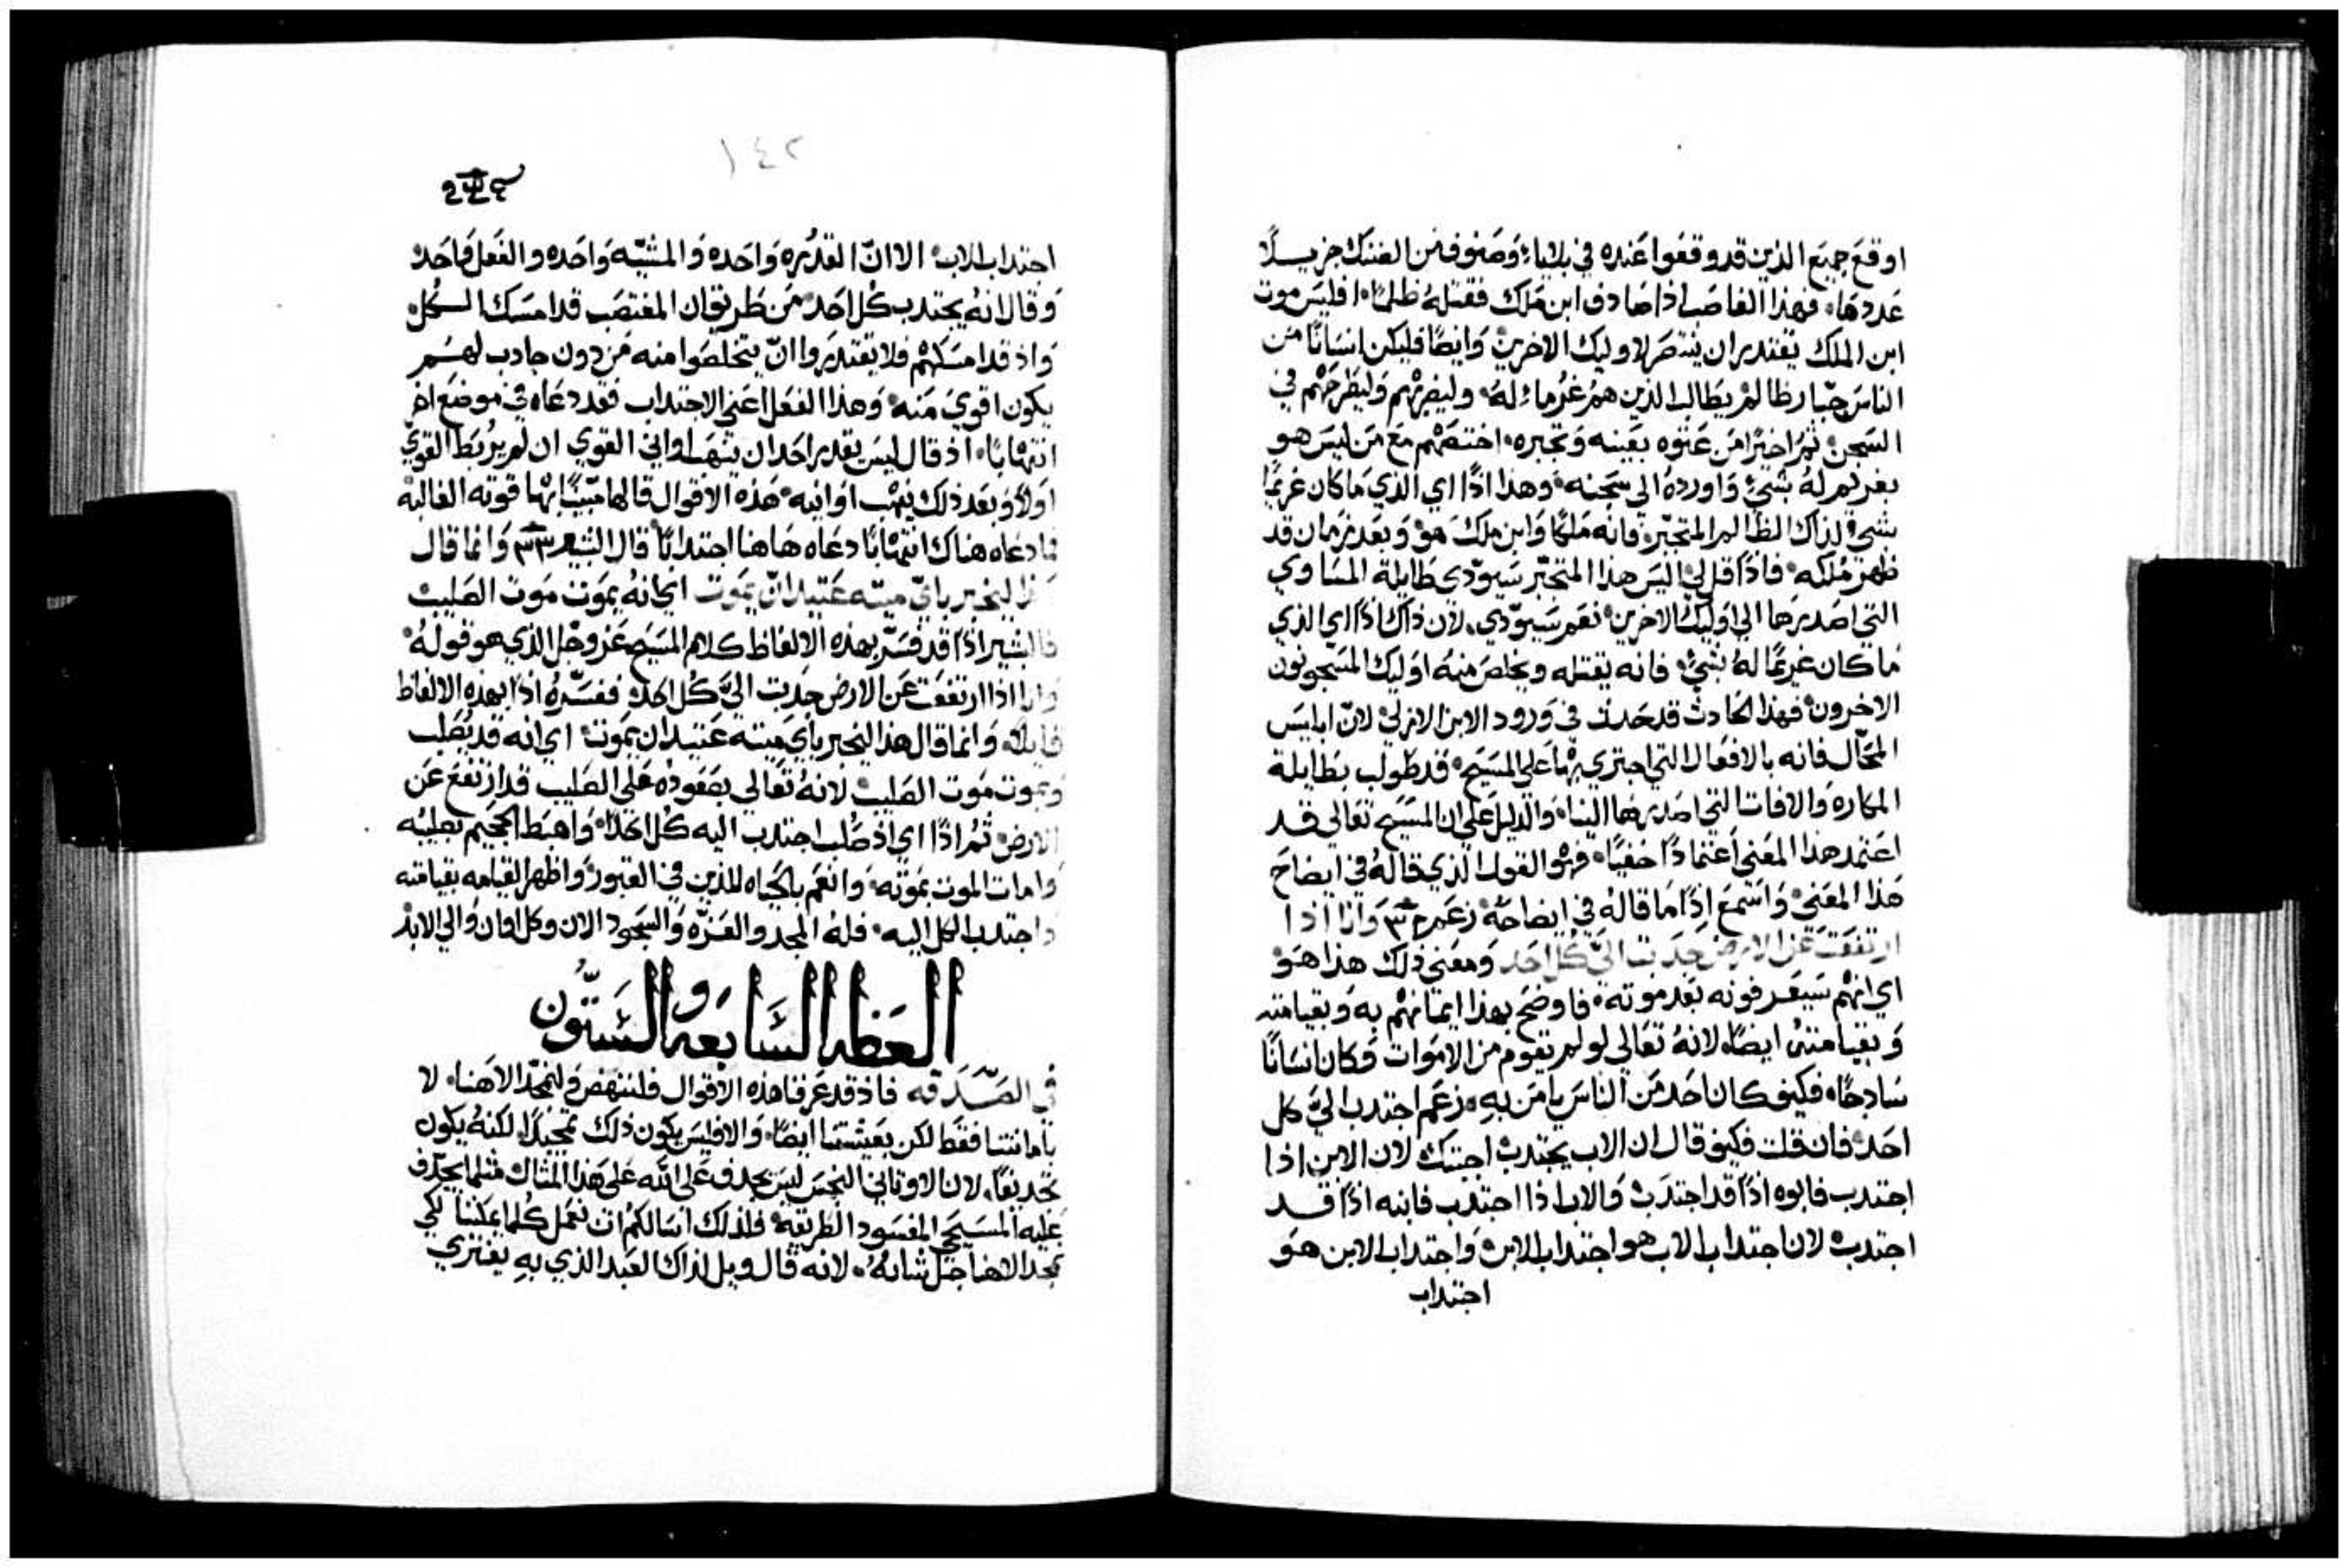 اوقع جميع الذين قد وقعوا عنده في بلاياء وصنوف من الضنك جزيلًا
عددها، فهذا الغاصب اذا صادف ابن ملك فقتله ظلما، افليس موت
ابن الملك يقتدر ان ينتصر لاوليك الاخرين وايضًا فليكن انسانًا من
الناس جبارظالم يطالب الذين هم غرماء له، وليضربهم وليطرحهم في
السجن، ثم اخيرًا من عتوه بعينه وتجبره، اختصهم مع من ليس هو
بغريم له بشيء واورده الي سجنه، وهذا اذًا اي الذي ما كان غريمًا
بشي لذاك الظالم المتجبر، فانه ملكًا وابن ملك هو وبعد زمان قد
ظهر ملكه، فاذًا قل لي اليس هذا المتجبر سيودي طايلة المساوي
التي اصدرها الي اوليك الاخرين، نعم سيودي، لان ذاك اذًا اي الذي
ما كان غريمًا له بشيء، فانه يقتله ويخلص منه اوليك المسجونون
الاخرون، فهذا الحادث قد حدث في ورود الابن الازلي، لان ابليس
المحال فانه بالافعال التي اجتري بها علي المسيح، قد طولب بطايلة
المكاره والافات التي اصدرها الينا، والدليل علي ان المسيح تعالي قد
اعتمد هذا المعني اعتمادًا خفيًا، فهو القول الذي قاله في ايضاح
هذا المعني، واسمع اذًا ما قاله في ايضاحه، زعم وانا اذا
ارتفعت عن الارض جدبت الي كل احد ومعني ذلك هذا هو
اي انهم سيعرفونه بعد موته، فاوضح بهذا ايمانهم به وبقيامته
وبقيامتنا ايضًا، لانه تعالي لو لم يقوم من الاموات وكان انسانًا
سادجًا، فكيف كان احد من الناس يامن به، زعم اجتدب الي كل
احد، فان قلت فكيف قال ان الاب يجتدب اجبتك لان الابن اذا
اجتدب فابوه اذًا قد اجتدب والاب اذا اجتدب فابنه اذًا قد
اجتدب، لان اجتداب الاب هو اجتداب الابن، واجتداب الابن هو
اجتداب
١٤٢
اجتداب الاب، الا ان القدره واحده والمشيه واحده والفعل واحد
وقال انه يجتدب كل احد، من طريق ان المغتصب قد امسك الكل
واذ قد امسكهم فلا يقتدروا ان يتخلصوا منه من دون جادب لهم
يكون اقوي منه، وهذا الفعل اعني الاجتداب فقد دعاه في موضع اخر
انتهابًا، اذ قال ليس يقدر احد ان ينهب اواني القوي ان لم يربط القوي
اولًا وبعد ذلك ينهب اوانيه، هذه الاقوال قالها مبينًا بها قوته الغالبة
فما دعاه هناك انتهابًا دعاه هاهنا اجتدابًا قال البشير وانما قال
هذا ليخبر باي ميته عتيد ان يموت اي انه يموت موت الصليب
فالبشير اذًا قد فسر بهذه الالفاظ كلام المسيح عز وجل الذي هو قوله
وانا اذا ارتفعت عن الارض جدبت الي كل احد، ففسره اذًا بهذه الالفاظ
قايلًا، وانما قال هذا ليخبر باي ميته عتيد ان يموت، اي انه قد يصلب
ويموت موت الصليب، لانه تعالي بصعوده علي الصليب قد ارتفع عن
الارض، ثم اذًا اي اذ صلب اجتدب اليه كل احد، واهبط الجحيم بصليبه
وامات الموت بموته، وانعم بالحياه للذين في القبور، واظهر القيامه بقيامته
واجتدب الكل اليه، فله المجد والعزه والسجود الان وكل اوان والي الابد
العظه السابعه والستون
في الصدقه فاذ قد عرفنا هذه الاقوال فلننهض ولنمجد الاهنا، لا
بامانتنا فقط لكن بعيشتنا ايضًا، والا فليس يكون ذلك تمجيدًا لكنه يكون
تجديفًا، لان الاوتاني النجس ليس يجدف علي الله علي هذا المثال مثلما يجدف
عليه المسيحي المفسود الطريقة، فلذلك اسالكم ان نعمل كلما يمكننا لكي
نمجد الاهنا جل شانه، لانه قال ويل لذاك العبد الذي به يفتري